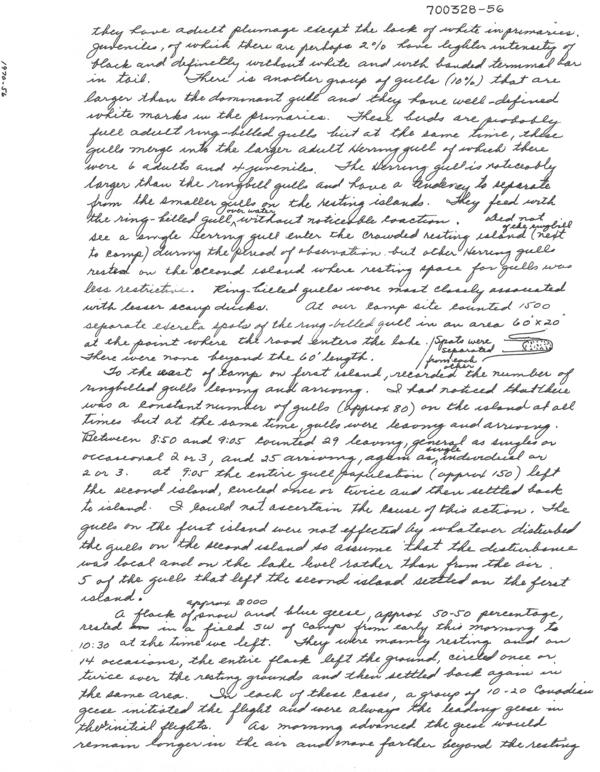 700328-56
1970-56
they have adult plumage except the lack of white in primaries.
Juveniles, of which there are perhaps 2% have lighter intensity of
black and definetly without white and with banded terminal bar
in tail. There is another group of gulls (10%) that are
larger than the dominant gull and they have well-defined
white marks in the primaries. These birds are probably
full adult ring-billed gulls but at the same time, these
gulls merge into the larger adult Herring gull of which there
were 6 adults and 4 juveniles. The Herring gull is noticeably
larger than the ringbill gulls and have a tendency to separate
from the smaller gulls on the resting islands. They feed with
the ring-billed gull, over water without noticeable reaction. Did not
see a single Herring gull enter the crowded resting island of the ringbill (next
to camp) during the period of observation but other Herring gulls
rested on the second island where resting space for gulls was
less restrictive. Ring-billed gulls were most closely associated
with lesser scaup ducks. At our camp site counted 1500
separate excreta spots of the ring-billed gull in an area 60' x 20'
at the point where the road enters the lake. Spots were separated from each other
There were none beyond the 60' length.
To the east of camp on first island, recorded the number of
ringbilled gulls leaving and arriving. I had noticed that there
was a constant number of gulls (approx 80) on the island at all
times but at the same time, gulls were leaving and arriving.
Between 8:50 and 9:05 counted 29 leaving, general as singles or
occasional 2 or 3, and 25 arriving, again as single individual or
2 or 3. At 9:05 the entire gull population (approx 150) left
the second island, circled once or twice and then settled back
to island. I could not ascertain the cause of this action. The
gulls on the first island were not effected by whatever disturbed
the gulls on the second island so assume that the disturbance
was local and on the lake level rather than from the air.
5 of the gulls that left the second island settled on the first
island.
A flock of approx 2000 snow and blue geese, approx 50-50 percentage,
rested in a field SW of camp from early this morning to
10:30 at the time we left. They were mainly resting and on
14 occasions, the entire flock left the ground, circled once or
twice over the resting grounds and then settled back again in
the same area. In each of these cases, a group of 10-20 Canadian
geese initiated the flight and were always the leading geese in
the initial flights. As morning advanced the geese would
remain longer in the air and move farther beyond the resting